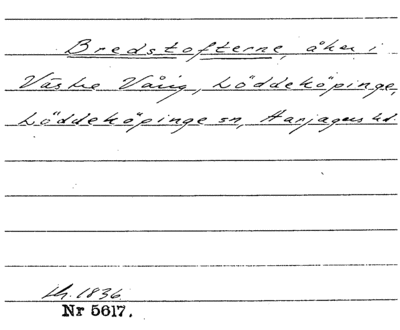 Bredstofterne, åker i
Västre Vång, Löddeköpinge,
Löddeköpinge sn, Harjagers hd.
lh. 1836.
Nr 5617.